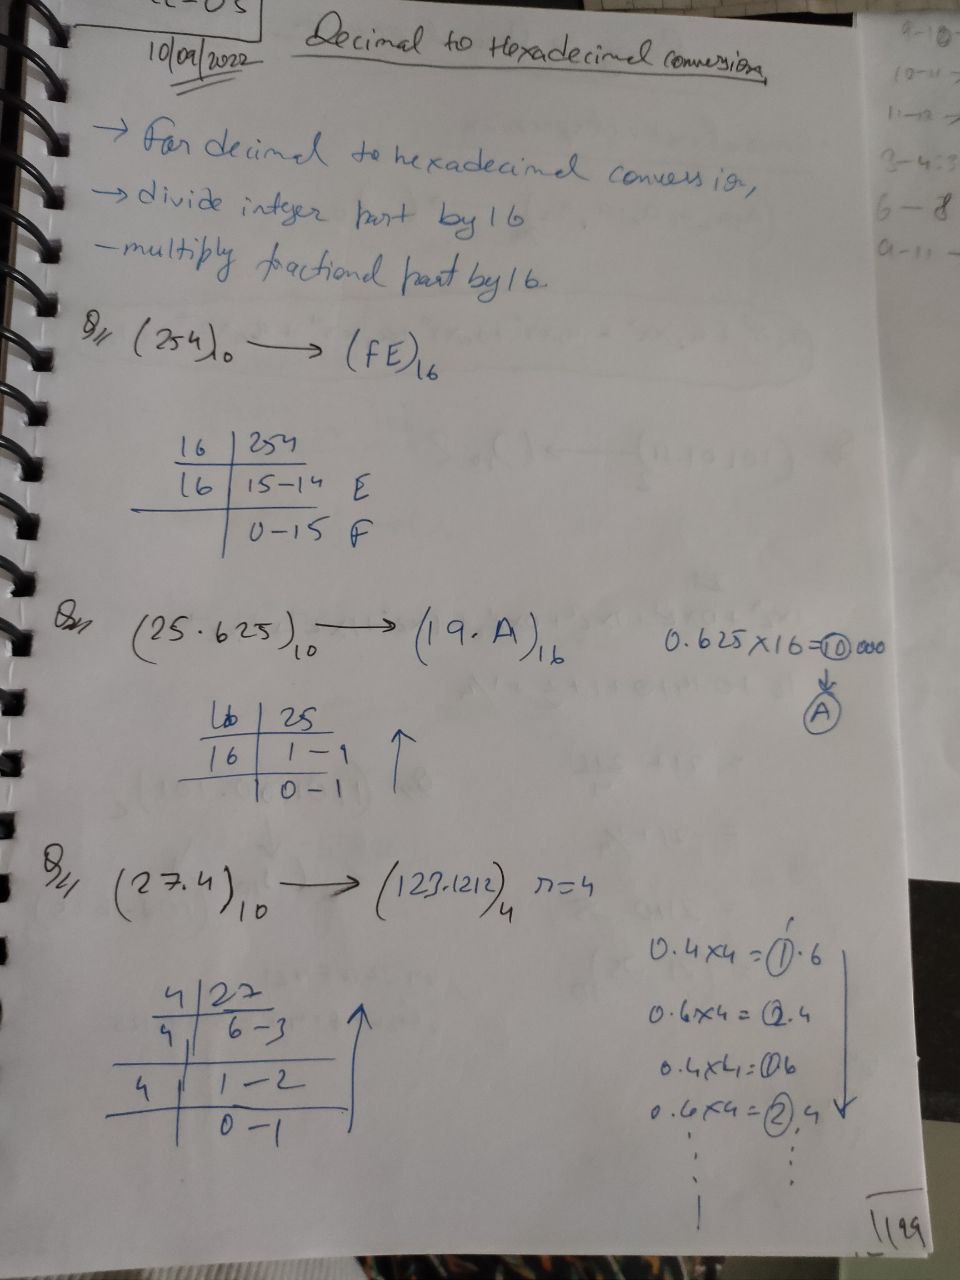 10/09/2022
Decimal to Hexadecimal conversion,
→ For decimal to hexadecimal conversion,
→ divide integer part by 16
- multiply fractional part by 16
Q// (254)10 → (FE)16
16 | 254
16 | 15-14 E
0-15 F
Q// (25.625)10 → (19.A)16
0.625×16=10 000
↓
A
16 | 25
16 | 1-9
0-1
Q// (27.4)10 → (123.1212)4 r=4
4 | 27
4 | 6-3
4 | 1-2
0-1
0.4×4=1.6
0.6×4=2.4
0.4×4=1.6
0.6×4=2.4
9-10
10-11→
11-12→
3-4:3
6-8
9-11-